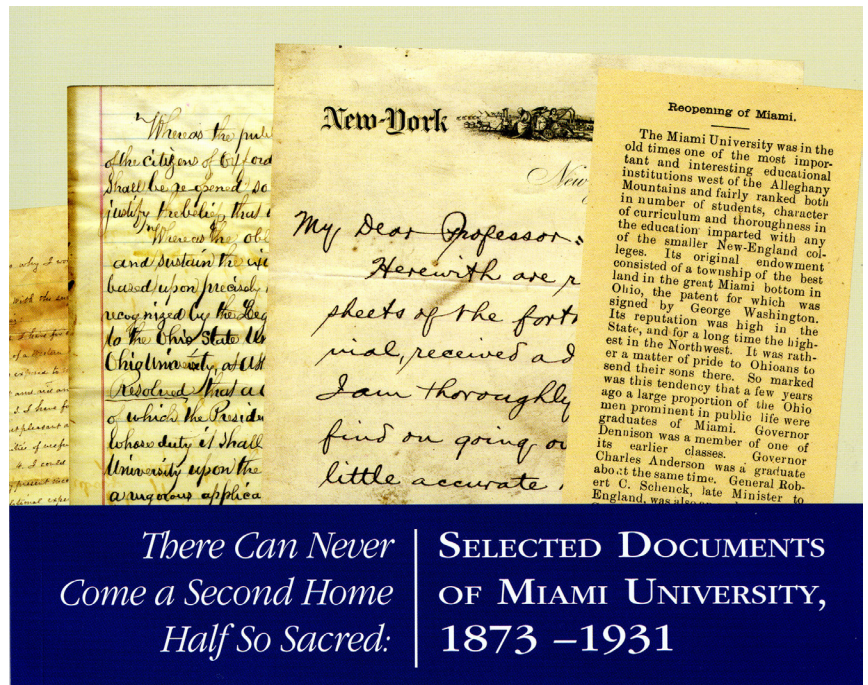 why I wo
with the
"Whereas the publ
of the citizens of Oxford
Shall be re-opened so
justify the belief, that
"Whereas the, obl
and sustain the uni
based upon precisely
recognized by the Leg
to the Ohio State Un
Ohio University, at At
Resolved that a
of which the Preside
whose duty it shall
University upon the
a vigorous applica
New-York
New
My Dear Professor:
Herewith are r
sheets of the fort
nial, received ad
I am thoroughly
find on going ov
little accurate
Reopening of Miami.
The Miami University was in the
old times one of the most impor-
tant and interesting educational
institutions west of the Alleghany
Mountains and fairly ranked both
in number of students, character
of curriculum and thoroughness in
the education imparted with any
of the smaller New-England col-
leges. Its original endowment
consisted of a township of the best
land in the great Miami bottom in
Ohio, the patent for which was
signed by George Washington.
Its reputation was high in the
State, and for a long time the high-
est in the Northwest. It was rath-
er a matter of pride to Ohioans to
send their sons there. So marked
was this tendency that a few years
ago a large proportion of the Ohio
men prominent in public life were
graduates of Miami. Governor
Dennison was a member of one of
its earlier classes. Governor
Charles Anderson was a graduate
about the same time. General Rob-
ert C. Schenck, late Minister to
England, was also
There Can Never
Come a Second Home
Half So Sacred:
SELECTED DOCUMENTS
OF MIAMI UNIVERSITY,
1873 –1931